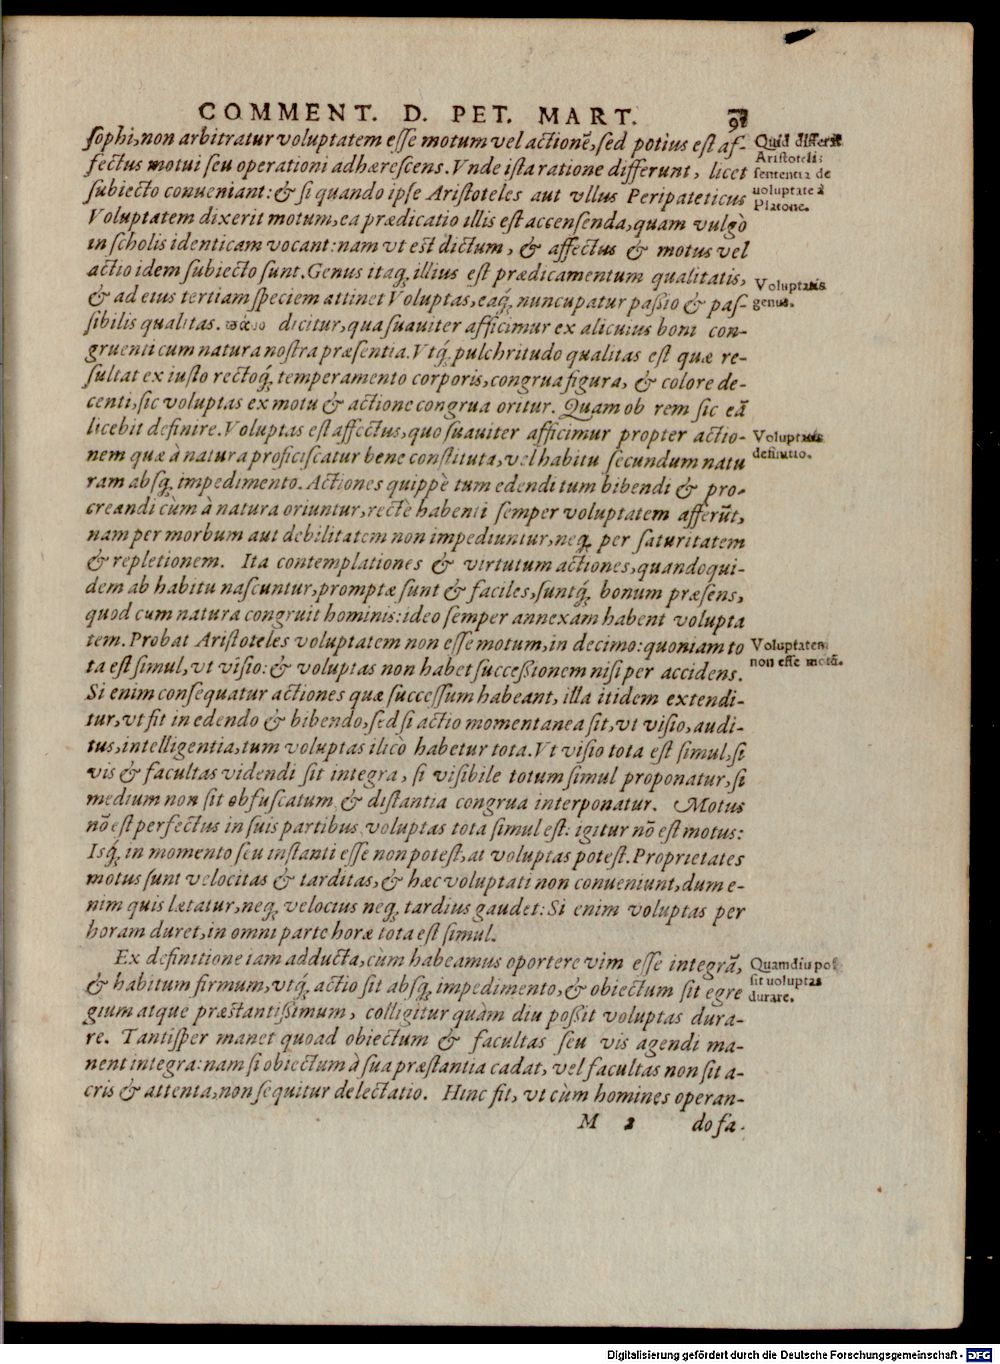 COMMENT. D. PET. MART. 91
ſophi, non arbitratur voluptatem eſſe motum vel actionē, ſed potiùs eſt af-
fectus motui ſeu operationi adhærescens. Vnde iſta ratione differunt, licet
ſubiecto conueniant: & ſi quando ipſe Ariſtoteles aut vllus Peripateticus
Voluptatem dixerit motum, ea prædicatio illis eſt accenſenda, quam vulgò
in ſcholis identicam vocant: nam vt est dictum, & affectus & motus vel
actio idem ſubiecto ſunt. Genus itaq; illius eſt prædicamentum qualitatis,
& ad eius tertiam ſpeciem attinet Voluptas, eaq́; nuncupatur paßio & paſ-
ſibilis qualitas. dicitur, qua ſuauiter afficimur ex alicuius boni con-
gruenti cum natura noſtra præſentia. Vtq́; pulchritudo qualitas eſt quæ re-
ſultat ex iuſto rectoq́; temperamento corporis, congrua figura, & colore de-
centi, ſic voluptas ex motu & actione congrua oritur. Quam ob rem ſic eā
licebit definire. Voluptas eſt affectus, quo ſuauiter afficimur propter actio-
nem quæ à natura proficiſcatur bene conſtituta, vel habitu ſecundum natu
ram abſq; impedimento. Actiones quippè tum edendi tum bibendi & pro-
creandi cùm à natura oriuntur, rectè habenti ſemper voluptatem afferūt,
nam per morbum aut debilitatem non impediuntur, neq; per ſaturitatem
& repletionem. Ita contemplationes & virtutum actiones, quandoqui-
dem ab habitu naſcuntur, promptæ ſunt & faciles, ſuntq́; bonum præſens,
quod cum natura congruit hominis: ideo ſemper annexam habent volupta
tem. Probat Ariſtoteles voluptatem non eſſe motum, in decimo: quoniam to
ta eſt ſimul, vt viſio: & voluptas non habet ſucceßionem niſi per accidens.
Si enim conſequatur actiones quæ ſucceſſum habeant, illa itidem extendi-
tur, vt fit in edendo & bibendo, ſed ſi actio momentanea ſit, vt viſio, audi-
tus, intelligentia, tum voluptas ilicò habetur tota. Vt viſio tota eſt ſimul, ſi
vis & facultas videndi ſit integra, ſi viſibile totum ſimul proponatur, ſi
medium non ſit obfuſcatum, & diſtantia congrua interponatur. Motus
nō eſt perfectus in ſuis partibus, voluptas tota ſimul eſt: igitur nō eſt motus:
Isq́; in momento ſeu inſtanti eſſe non poteſt, at voluptas poteſt. Proprietates
motus ſunt velocitas & tarditas, & hæc voluptati non conueniunt, dum e-
nim quis lætatur, neq; velocius neq; tardius gaudet: Si enim voluptas per
horam duret, in omni parte horæ tota eſt ſimul.
Ex definitione iam adducta, cum habeamus oportere vim eſſe integrā,
& habitum firmum, vtq́; actio ſit abſq; impedimento, & obiectum ſit egre
gium atque præſtantißimum, colligitur quàm diu poßit voluptas dura-
re. Tantiſper manet quoad obiectum & facultas ſeu vis agendi ma-
nent integra: nam ſi obiectum à ſua præſtantia cadat, vel facultas non ſit a-
cris & attenta, non ſequitur delectatio. Hinc fit, vt cùm homines operan-
M 2 do fa-
Quid differat
Ariſtotelis
ſententia de
voluptate à
Platone.
Voluptatis
genus.
Voluptatis
definitio.
Voluptatem
non eſſe motū.
Quamdiu poſ
ſit voluptas
durare.
Digitalisierung gefördert durch die Deutsche Forschungsgemeinschaft - DFG